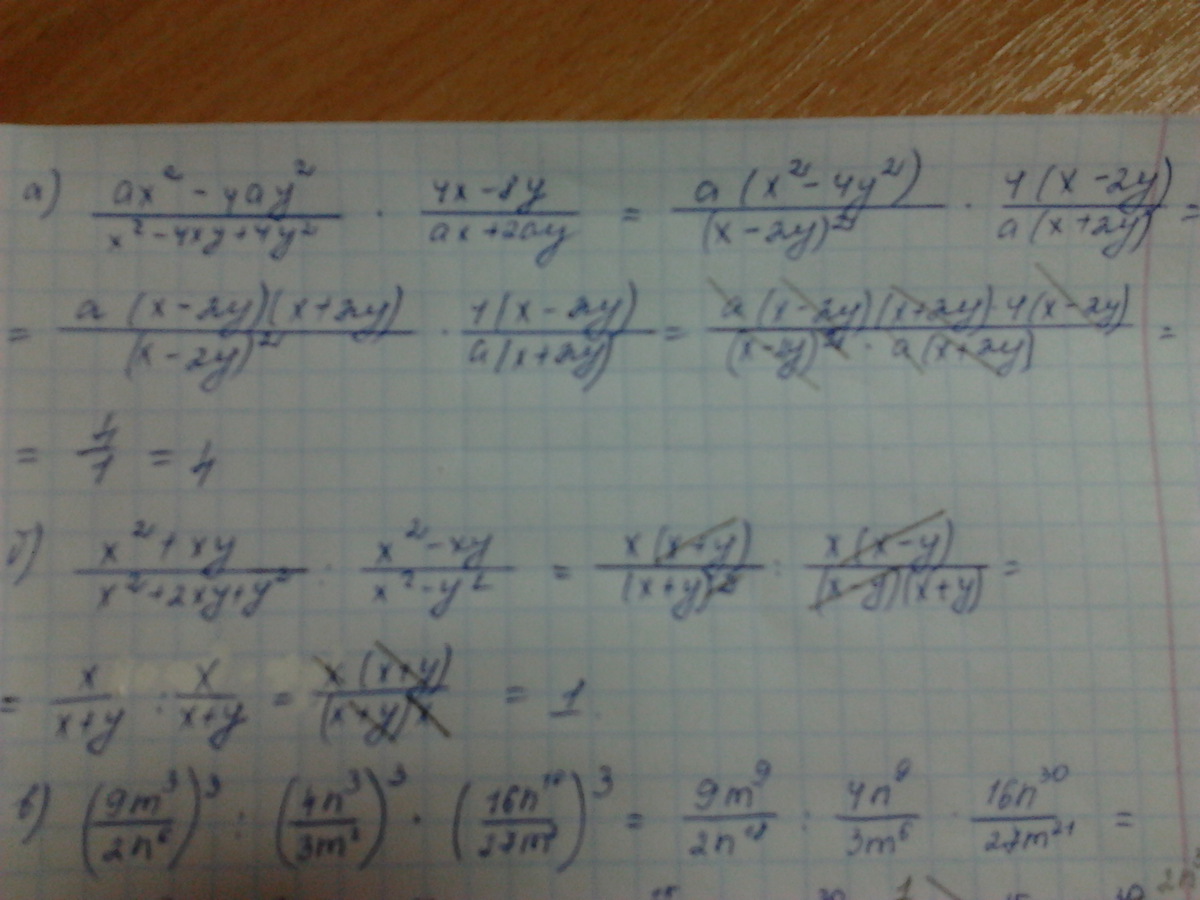 а) (ax² - 4ay²)/(x² - 4xy + 4y²) · (4x - 8y)/(ax + 2ay) = a(x² - 4y²)/(x - 2y)² · 4(x - 2y)/a(x + 2y) =
= a(x - 2y)(x + 2y)/(x - 2y)² · 4(x - 2y)/a(x + 2y) = a(x - 2y)(x + 2y) · 4(x - 2y)/(x - 2y)² · a(x + 2y) =
= 4/1 = 4
б) (x² + xy)/(x² + 2xy + y²) : (x² - xy)/(x² - y²) = x(x + y)/(x + y)² : x(x - y)/(x - y)(x + y) =
= x/(x + y) : x/(x + y) = x(x + y)/(x + y)x = 1
в) (9m³/2n⁶)³ : (4n³/3m²)³ · (16n¹⁰/27m⁷)³ = 9m⁹/2n¹⁸ : 4n⁹/3m⁶ · 16n³⁰/27m²¹ =